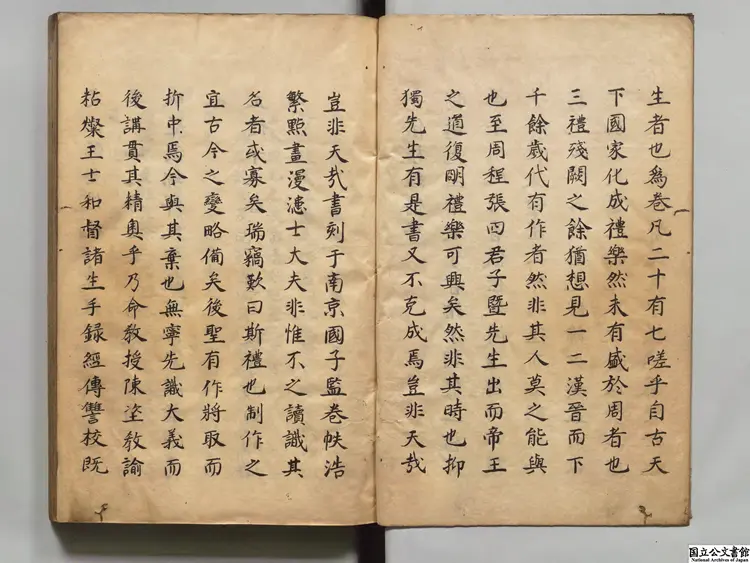 生者也為卷凡二十有七嗟乎自古天
下國家化成禮樂然未有盛於周者也
三禮殘闕之餘猶想見一二漢晉而下
千餘歲代有作者然非其人莫之能與
也至周程張四君子暨先生出而帝王
之道復明禮樂可興矣然非其時也抑
獨先生有是書又不克成焉豈非天哉
豈非天哉書刻于南京國子監卷帙浩
繁點畫漫漶士大夫非惟不之讀識其
名者或寡矣瑞竊歎曰斯禮也制作之
宜古今之變略備矣後聖有作將取而
折中焉今與其棄也無寧先識大義而
後講貫其精奧乎乃命教授陳垐教諭
粘燦王士和督諸生手錄經傳讐校既
国立公文書館
National Archives of Japan